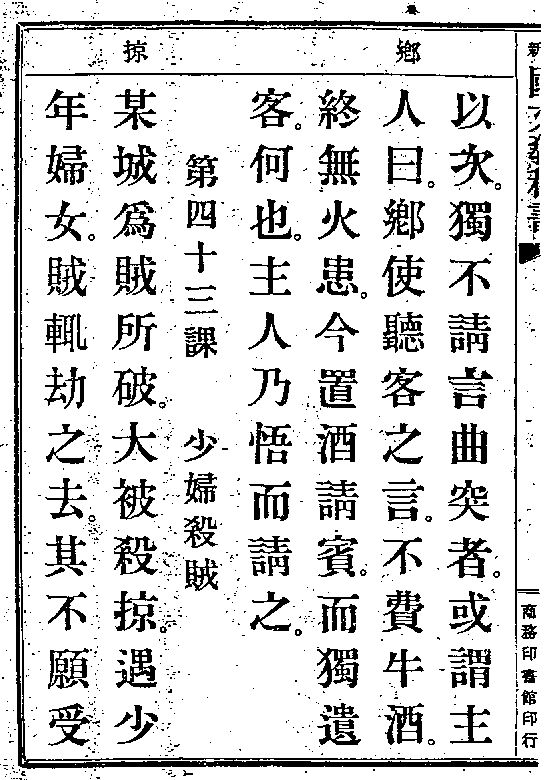 商務印書館印行
鄉
掠
以次。獨不請言曲突者。或謂主
人曰。鄉使聽客之言。不費牛酒。
終無火患。今置酒請賓。而獨遺
客。何也。主人乃悟而請之。
第四十三課 少婦殺賊
某城爲賊所破。大被殺掠。遇少
年婦女。賊輒劫之去。其不願受